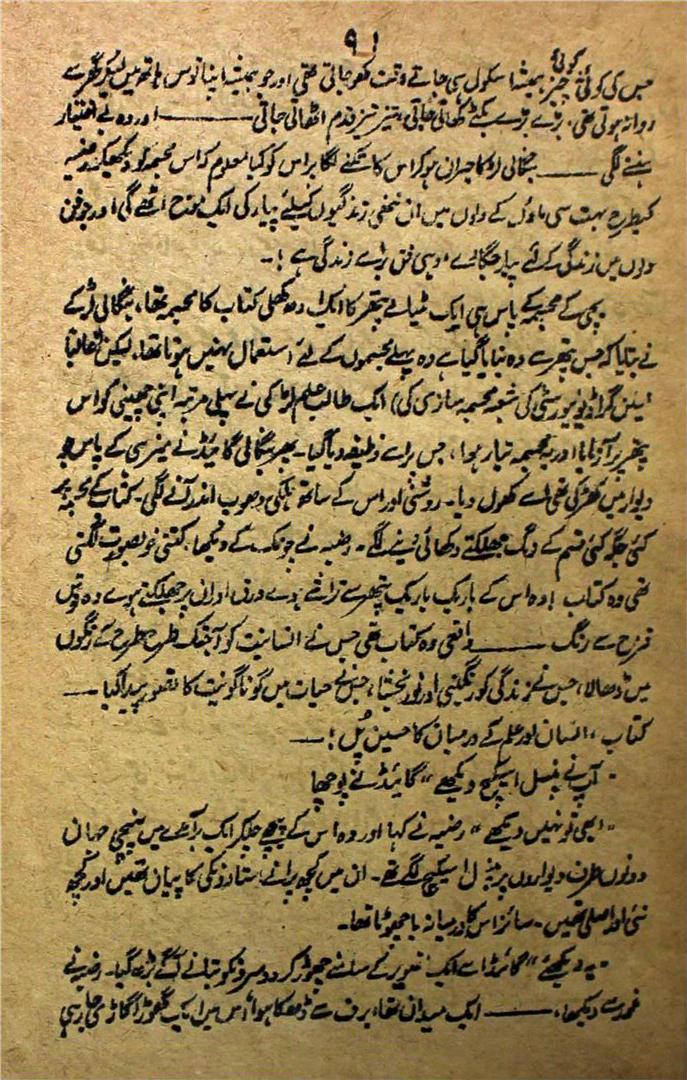 ۹۱
جس کی کوئی نہ کوئی چیز ہمیشہ اسکول سے جاتے وقت کھو جاتی تھی اور جو ہمیشہ اپنا توس ہاتھ میں لیکر گھر سے
روانہ ہوتی تھی۔ بڑے بڑے بکٹے کھاتی جاتی، تیز تیز قدم اٹھاتی جاتی ــــــ اور وہ بے اختیار
ہنسنے لگی ــــــ بنگالی لڑکا حیران ہوکر اس کا تکنے لگا بر اس کو کیا معلوم کہ اس مجسمہ کو دیکھ کر رضیہ
کیطرح بہت سی ماؤں کے دلوں میں ان ننھی زندگیوں کیلئے پیار کی ایک موج اٹھے گی اور جو فن
دلوں میں زندگی کے لئے پیار جگالے، وہی فن برائے زندگی ہے !۔
بچی کے مجسمہ کے پاس ہی ایک مٹیالے پتھر کا ایک ادھ کھلی کتاب کا مجسمہ تھا، بنگالی لڑکے
نے بتلایا کہ جس پتھر سے وہ بنایا گیا ہے وہ پہلے مجسموں کے لئے استعمال نہیں ہوتا تھا۔ لیکن غالباً
لینن گراڈ یونیورسٹی کی شعبہ مجسمہ سازی کی) ایک طالب علم لڑکی نے پہلی مرتبہ اپنی چھینی کو اس
پتھر پر آزمایا اور یہ مجسمہ تیار ہوا، جس پر اسے وظیفہ دیا گیا۔ پھر بنگالی گائیڈ نے میز سی کے پاس جو
دیوار میں کھڑکی تھی اسے کھول دیا۔ روشنی اور اس کے ساتھ ہلکی دھوپ اندر آنے لگی۔ کتاب کے مجسمہ پر
کئی جگہ کئی قسم کے رنگ جھلکتے دکھائی دینے لگے۔ رضیہ نے چونک کے دیکھا، کتنی خوبصورت لگتی
تھی وہ کتاب! وہ اس کے باریک باریک پتھر سے تراشے ہوے ورق اور ان پر جھلکتے ہوے وہ قوس
قزح سے رنگ ــــــ واقعی وہ کتاب تھی جس نے انسانیت کو آجتک طرح طرح کے رنگوں
میں ڈھالا، جس نے زندگی کو رنگینی اور نور بخشا، جس نے حیات میں گوناگونیت کا تصور پیدا کیا ــــ
کتاب، انسان اور علم کے درمیان کا حسین پُل !ــــ
"آپ نے پنسل اسکیچ دیکھے" گائیڈ نے پوچھا
"ابھی تو نہیں دیکھے" رضیہ نے کہا اور وہ اس کے پیچھے چلکر ایک برآمدے میں پہنچی جہاں
دونوں طرف دیواروں پر پنسل اسکیچ لگے تھے۔ ان میں کچھ پرانے استادوں کی کاپیاں تھیں اور کچھ
نئی اور اصلی تھیں۔ سائز اس کا درمیانہ یا چھوٹا تھا۔
"یہ دیکھئے" گائیڈ اسے ایک تصویر کے سامنے چھوڑ کر دوسروں کو بتانے آگے بڑھ گیا۔ رضیہ نے
غور سے دیکھا، ــــــ ایک میدان تھا، برف سے ڈھکا ہوا اُس میں ایک گھوڑا گاڑی جا رہی